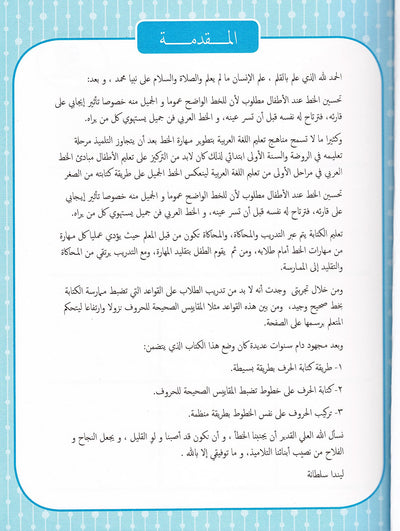 المقدمة
الحمد لله الذي علم بالقلم ، علم الإنسان ما لم يعلم والصلاة والسلام على نبينا محمد ، و بعد:
تحسين الخط عند الأطفال مطلوب لأن للخط الواضح عموما و الجميل منه خصوصا تأثير إيجابي على
قارئه، فترتاح له نفسه قبل أن تسر عينه، و الخط العربي فن جميل يستهوي كل من يراه.
وكثيرا ما لا تسمح مناهج تعليم اللغة العربية بتطوير مهارة الخط بعد أن يتجاوز التلميذ مرحلة
تعليمه في الروضة والسنة الأولى ابتدائي لذلك كان لابد من التركيز على تعليم الأطفال مبادئ الخط
العربي في مراحل الأولى من تعليم اللغة العربية لينعكس الخط الجميل على طريقة كتابته من الصغر
تحسين الخط عند الأطفال مطلوب لأن للخط الواضح عموما و الجميل منه خصوصا تأثير إيجابي على
قارئه، فترتاح له نفسه قبل أن تسر عينه، و الخط العربي فن جميل يستهوي كل من يراه.
تعليم الكتابة يتم عبر التدريب والمحاكاة، والمحاكاة تكون من قبل المعلم حيث يؤدي عمليا كل مهارة
من مهارات الخط أمام طلابه، ومن ثم يقوم الطفل بتقليد المهارة، ومع التدريب يرتقي من المحاكاة
والتقليد إلى الممارسة.
ومن خلال تجربتي وجدت أنه لا بد من تدريب الطلاب على القواعد التي تضبط مهارسة الكتابة
بخط صحيح وجيد، ومن بين هذه القواعد مثلا المقاييس الصحيحة للحروف نزولا وارتفاعا ليتحكم
المتعلم برسمها على الصفحة.
وبعد مجهود دام سنوات عديدة كان وضع هذا الكتاب الذي يتضمن:
١- طريقة كتابة الحرف بطريقة بسيطة.
٢- كتابة الحرف على خطوط تضبط المقاييس الصحيحة للحروف.
٣- تركيب الحروف على نفس الخطوط بطريقة منظمة.
نسأل الله العلي القدير أن يجنبنا الخطأ، و أن نكون قد أصبنا و لو القليل ، و يجعل النجاح و
الفلاح من نصيب أبنائنا التلاميذ، و ما توفيقي إلا بالله .
ليندا سلطانة